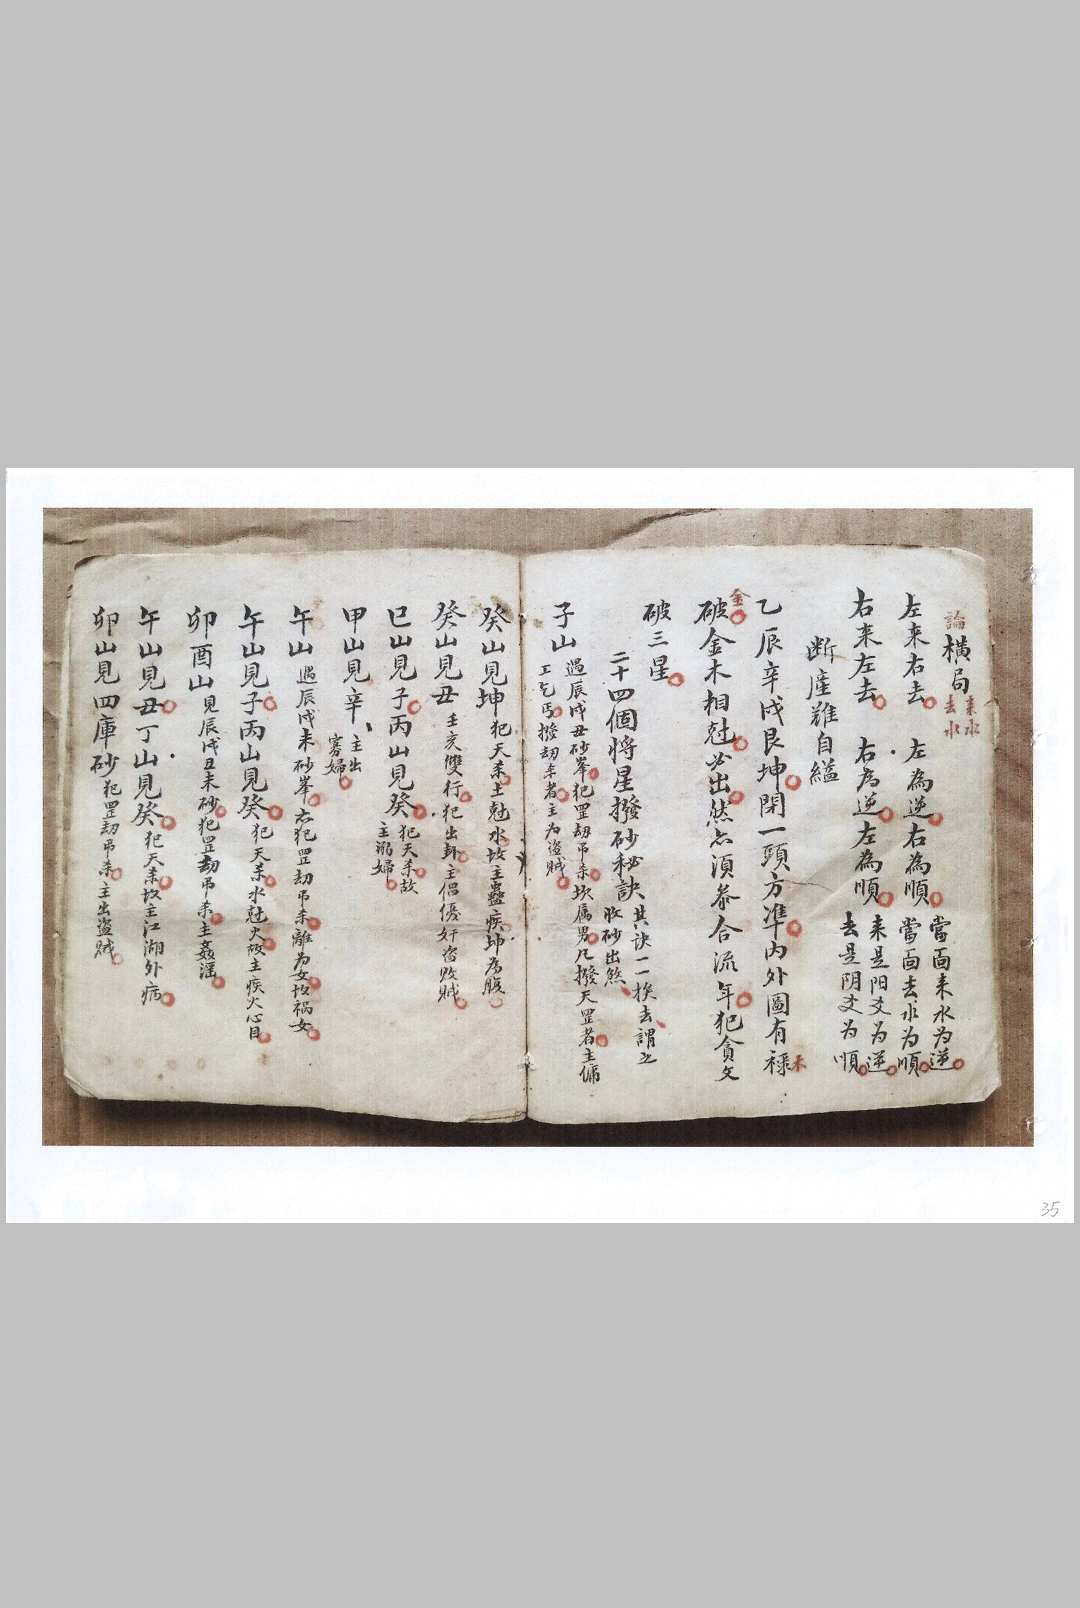 論橫局
来水
去水
左来右去 左為逆右為順
當面来水為逆
當面去水为順
右来左去 右为逆左為順
来是阳爻为逆
去是阴爻为順
断産難自縊
乙辰辛戌艮坤閉一頭方準内外圖有禄
木
金
破金木相尅必出然亦須参合流年犯貪文
破三星
二十四個將星撥砂秘訣
其诀一挨去謂之
收砂出煞
子山
遇辰戌丑砂峯犯罡劫吊杀坎属男凡撥天罡者主傭
工乞丐撥劫杀者主为盗賊
癸山見坤犯天杀土尅水故主蠱疾坤为腹
癸山見丑壬亥雙行犯出卦主倡優奸盗败賊
巳山見子丙山見癸犯天杀故
主溺婦
甲山見辛主出
寡婦
午山遇辰戌未砂峯亦犯罡劫吊杀離为女故祸女
午山見子丙山見癸犯天杀水尅火故主疾火心目
卯酉山見辰戌丑未砂犯罡劫吊杀主姦滛
午山見丑丁山見癸犯天杀故主江湖外病
卯山見四庫砂犯罡劫吊杀主出盗賊
35